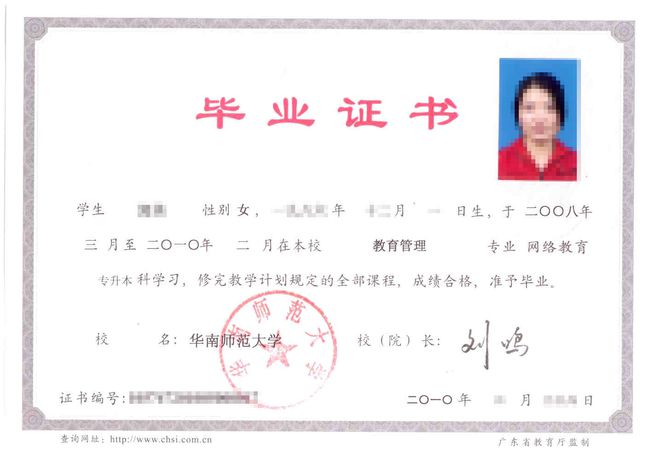 毕业证书
学生 性别 女， 年 月 日生，于 二〇〇八年
三 月至 二〇一〇年 二 月在本校 教育管理 专业 网络教育
专升本科学习，修完教学计划规定的全部课程，成绩合格，准予毕业。
校 名：华南师范大学 校（院）长：刘鸣
华南师范大学
证书编号： 二〇一〇年 月 日
查询网址：http://www.chsi.com.cn 广东省教育厅监制